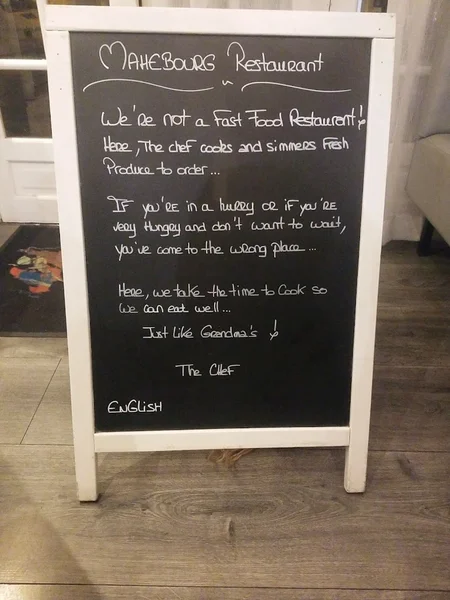 MAHEBOURG Restaurant
We're not a Fast Food Restaurant!
Here, The chef cooks and simmers Fresh
Produce to order...
IF you're in a hurry or if you're
very Hungry and don't want to wait,
you've come to the wrong place...
Here, we take the time to Cook so
We can eat well...
Just Like Grandma's !
The Chef
ENGLISH